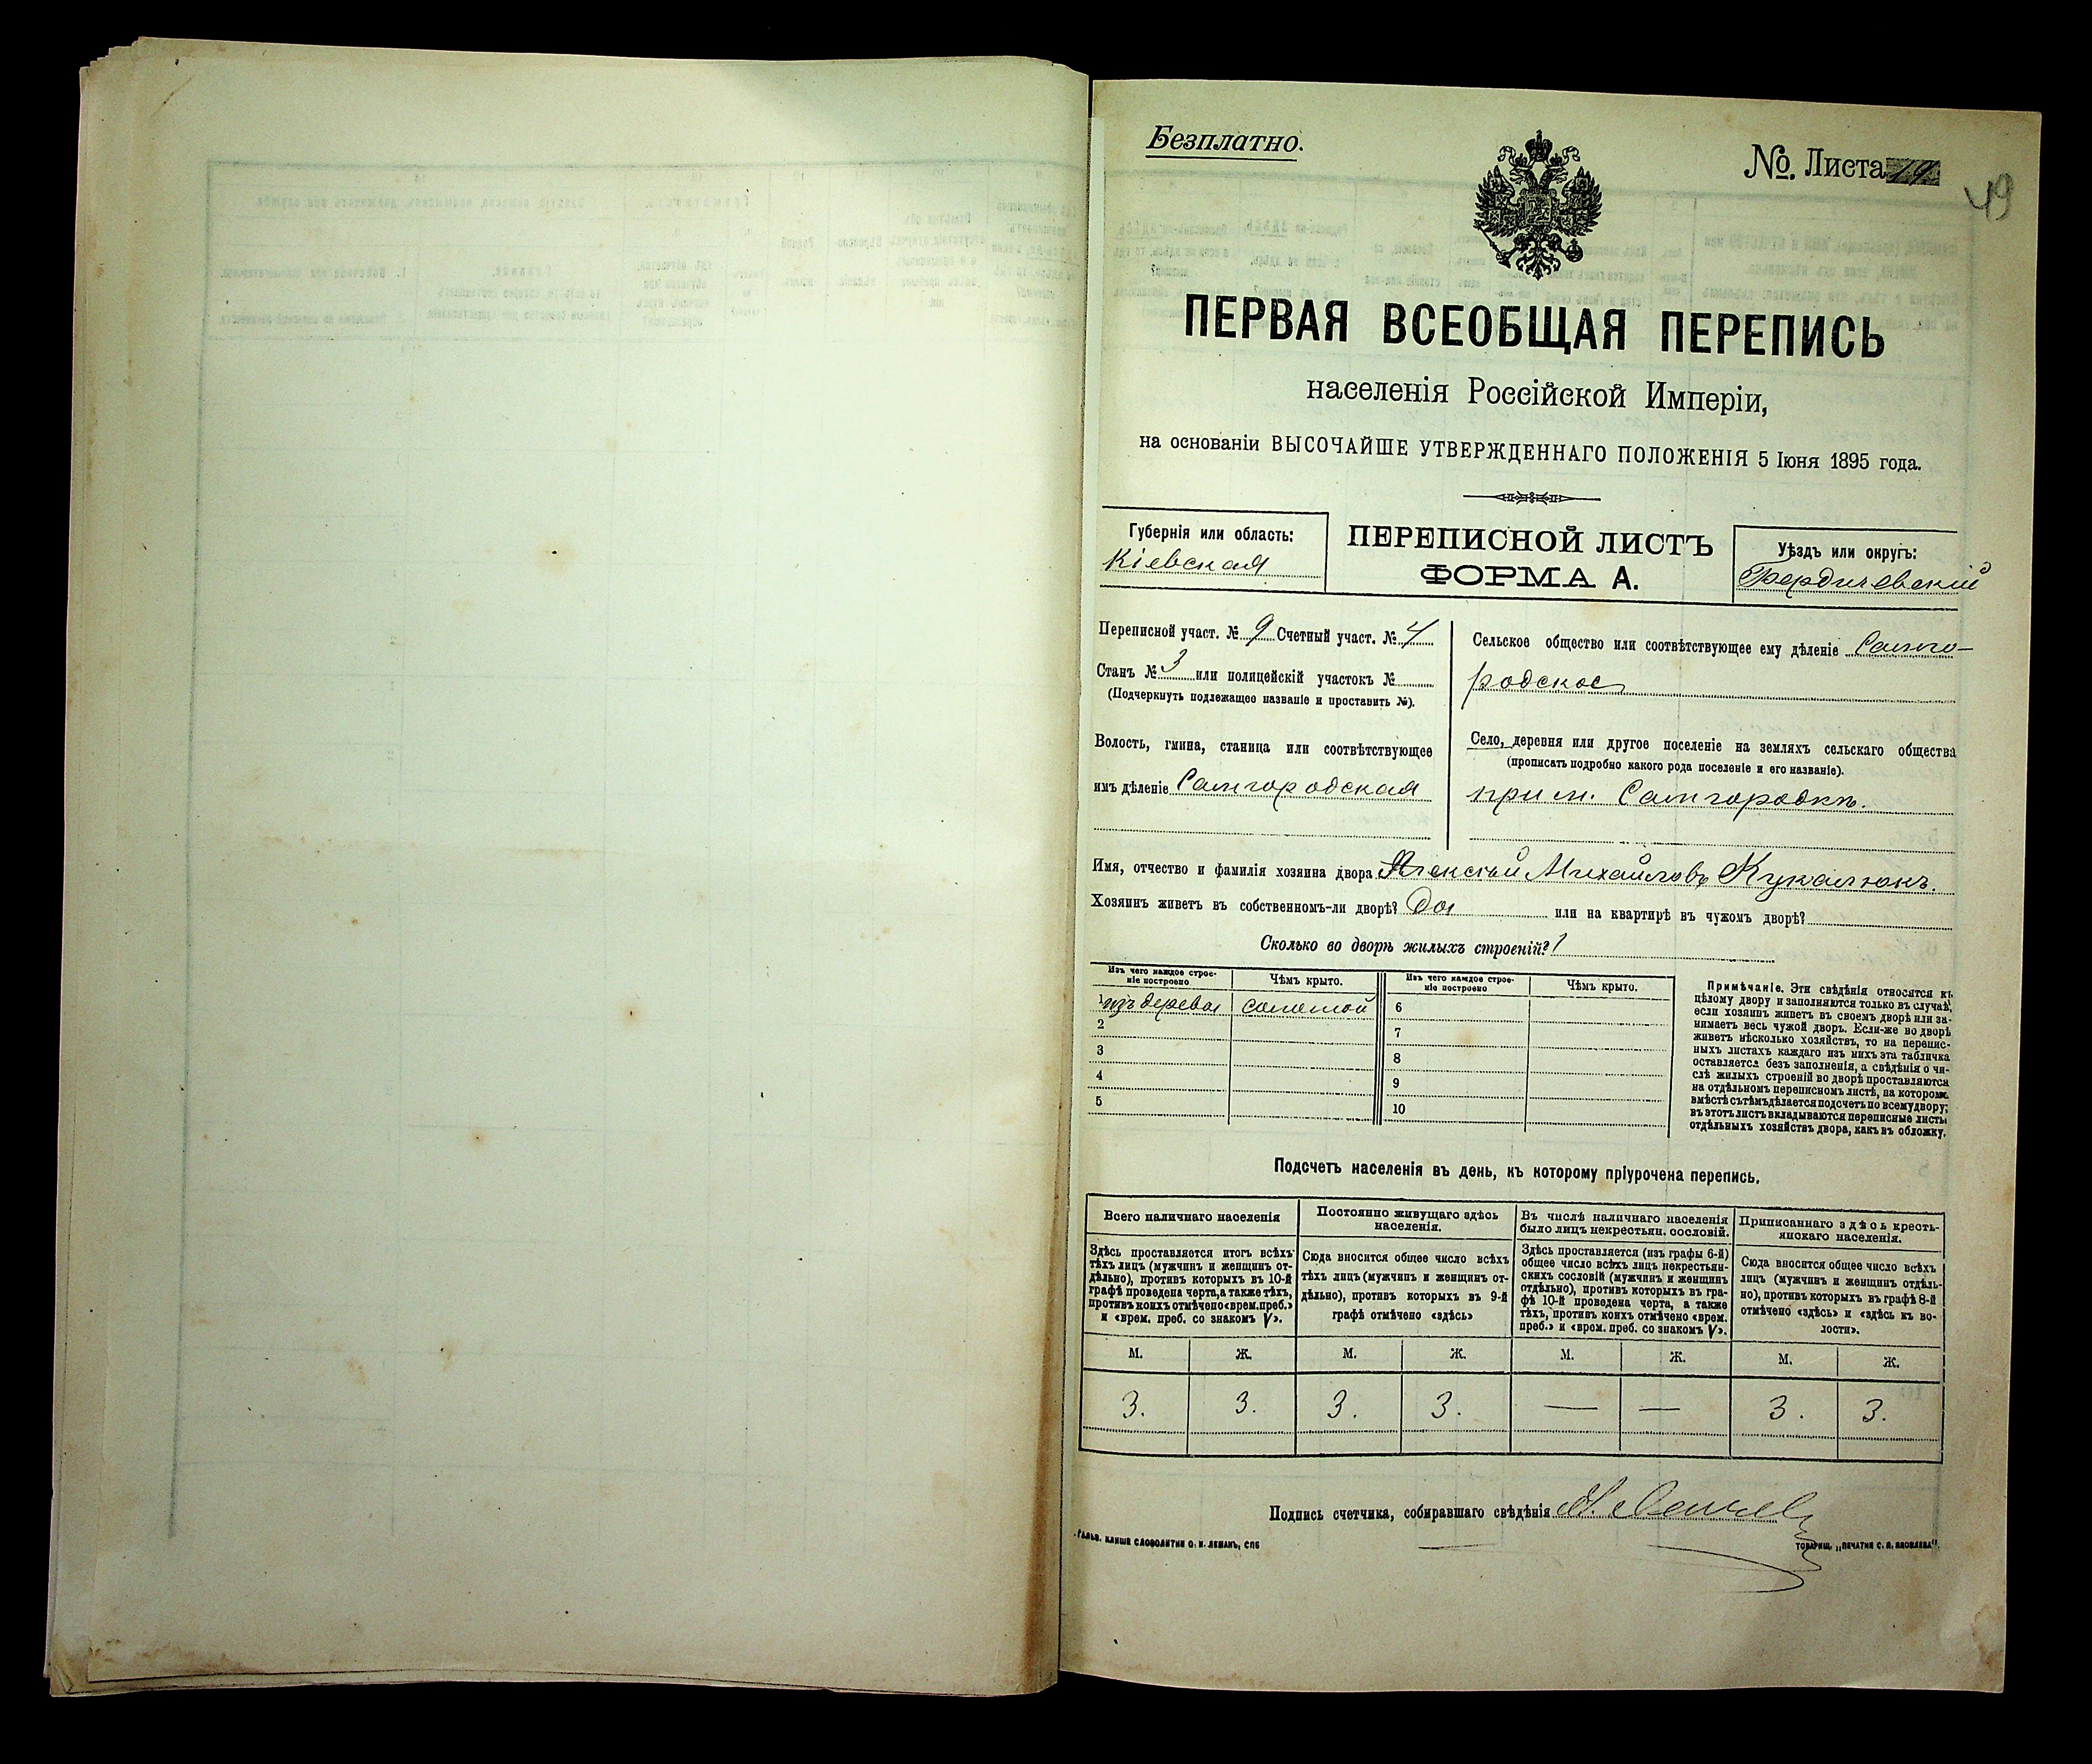 Безплатно.
№. Листа 19
49
ПЕРВАЯ ВСЕОБЩАЯ ПЕРЕПИСЬ
населенія Россійской Имперіи,
на основаніи ВЫСОЧАЙШЕ УТВЕРЖДЕННАГО ПОЛОЖЕНІЯ 5 Іюня 1895 года.
Губернія или область:
Кіевская
ПЕРЕПИСНОЙ ЛИСТЪ
ФОРМА А.
Уѣздъ или округъ:
Бердичевскій
Переписной участ. № 9 Счетный участ. № 4
Станъ № 3 или полицейскій участокъ №
(Подчеркнуть подлежащее названіе и проставить №).
Волость, гмина, станица или соотвѣтствующее
имъ дѣленіе Самгородская
Сельское общество или соотвѣтствующее ему дѣленіе Самго-
родское
Село, деревня или другое поселеніе на земляхъ сельскаго общества
(прописать подробно какого рода поселеніе и его названіе).
при м. Самгородкѣ.
Имя, отчество и фамилія хозяина двора Алексѣй Михайловъ Кукалюкъ.
Хозяинъ живетъ въ собственномъ-ли дворѣ? Да или на квартирѣ въ чужомъ дворѣ?
Сколько во дворѣ жилыхъ строеній? 1
Изъ чего каждое строе-
ніе построено
Чѣмъ крыто.
Изъ чего каждое строе-
ніе построено
Чѣмъ крыто.
1 изъ дерева соломой 6
2 7
3 8
4 9
5 10
Примѣчаніе. Эти свѣдѣнія относятся къ
цѣлому двору и заполняются только въ случаѣ,
если хозяинъ живетъ въ своемъ дворѣ или за-
нимаетъ весь чужой дворъ. Если-же во дворѣ
живетъ нѣсколько хозяйствъ, то на перепис-
ныхъ листахъ каждаго изъ нихъ эта табличка
оставляется безъ заполненія, а свѣдѣнія о чи-
слѣ жилыхъ строеній во дворѣ проставляются
на отдѣльномъ переписномъ листѣ, на которомъ
вмѣстѣ съ тѣмъ дѣлается подсчетъ по всему двору;
въ этотъ листъ вкладываются переписные листы
отдѣльныхъ хозяйствъ двора, какъ въ обложку.
Подсчетъ населенія въ день, къ которому пріурочена перепись.
Всего наличнаго населенія
Здѣсь проставляется итогъ всѣхъ
тѣхъ лицъ (мужчинъ и женщинъ от-
дѣльно), противъ которыхъ въ 10-й
графѣ проведена черта, а также тѣхъ,
противъ коихъ отмѣчено «врем. преб.»
и «врем. преб. со знакомъ V».
Постоянно живущаго здѣсь
населенія.
Сюда вносится общее число всѣхъ
тѣхъ лицъ (мужчинъ и женщинъ от-
дѣльно), противъ которыхъ въ 9-й
графѣ отмѣчено «здѣсь»
Въ числѣ наличнаго населенія
было лицъ некрестьян. сословій.
Здѣсь проставляется (изъ графы 6-й)
общее число всѣхъ лицъ некрестьян-
скихъ сословій (мужчинъ и женщинъ
отдѣльно), противъ которыхъ въ гра-
фѣ 10-й проведена черта, а также
тѣхъ, противъ коихъ отмѣчено «врем.
преб.» и «врем. преб. со знакомъ V».
Приписаннаго здѣсь кресть-
янскаго населенія.
Сюда вносится общее число всѣхъ
лицъ (мужчинъ и женщинъ отдѣль-
но), противъ которыхъ въ графѣ 8-й
отмѣчено «здѣсь» и «здѣсь къ во-
лости».
М. Ж. М. Ж. М. Ж. М. Ж.
3. 3. 3. 3. — — 3. 3.
Подпись счетчика, собиравшаго свѣдѣнія
ГАЛЬВ. КЛИШЕ СЛОВОЛИТНИ О. И. ЛЕМАНЪ, СПБ
ТОВАРИЩ. „ПЕЧАТНЯ С. П. ЯКОВЛЕВА".